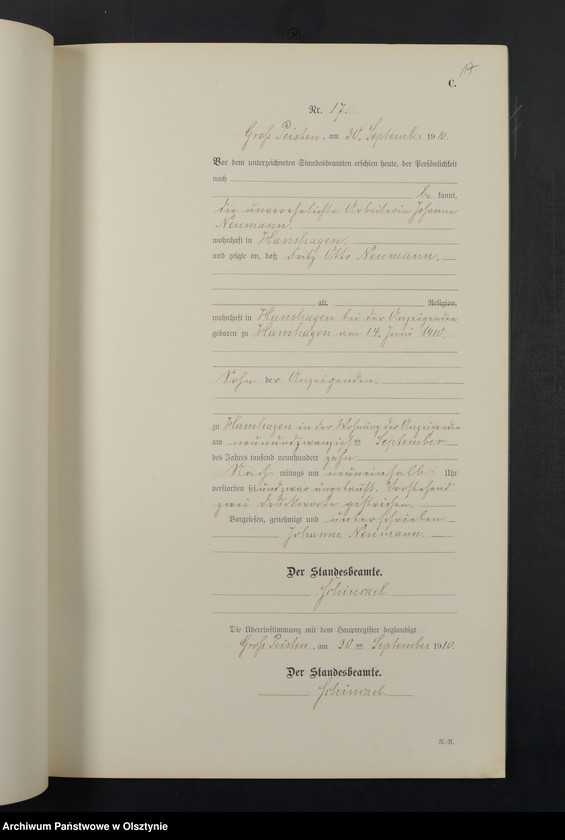 17
C.
Nr. 17.
Groß Peisten, am 30. September 1910.
Vor dem unterzeichneten Standesbeamten erschien heute, der Persönlichkeit
nach
be kannt,
die unverehelichte Arbeiterin Johanne
Neumann,
wohnhaft in Hanshagen,
und zeigte an, daß Fritz Otto Neumann,
alt, Religion,
wohnhaft in Hanshagen bei der Anzeigenden
geboren zu Hanshagen am 14. Juni 1910,
Sohn der Anzeigenden,
zu Hanshagen in der Wohnung der Anzeigenden
am neunundzwanzigsten September
des Jahres tausend neunhundert zehn
Nach mittags um neuneinhalb Uhr
verstorben sei und zwar ungetauft. Vorstehend
zwei Druckworte gestrichen.
Vorgelesen, genehmigt und unterschrieben
Johanne Neumann.
Der Standesbeamte.
Die Übereinstimmung mit dem Hauptregister beglaubigt
Groß Peisten, am 30 ten September 1910.
Der Standesbeamte.
N.-R.
Archiwum Państwowe w Olsztynie